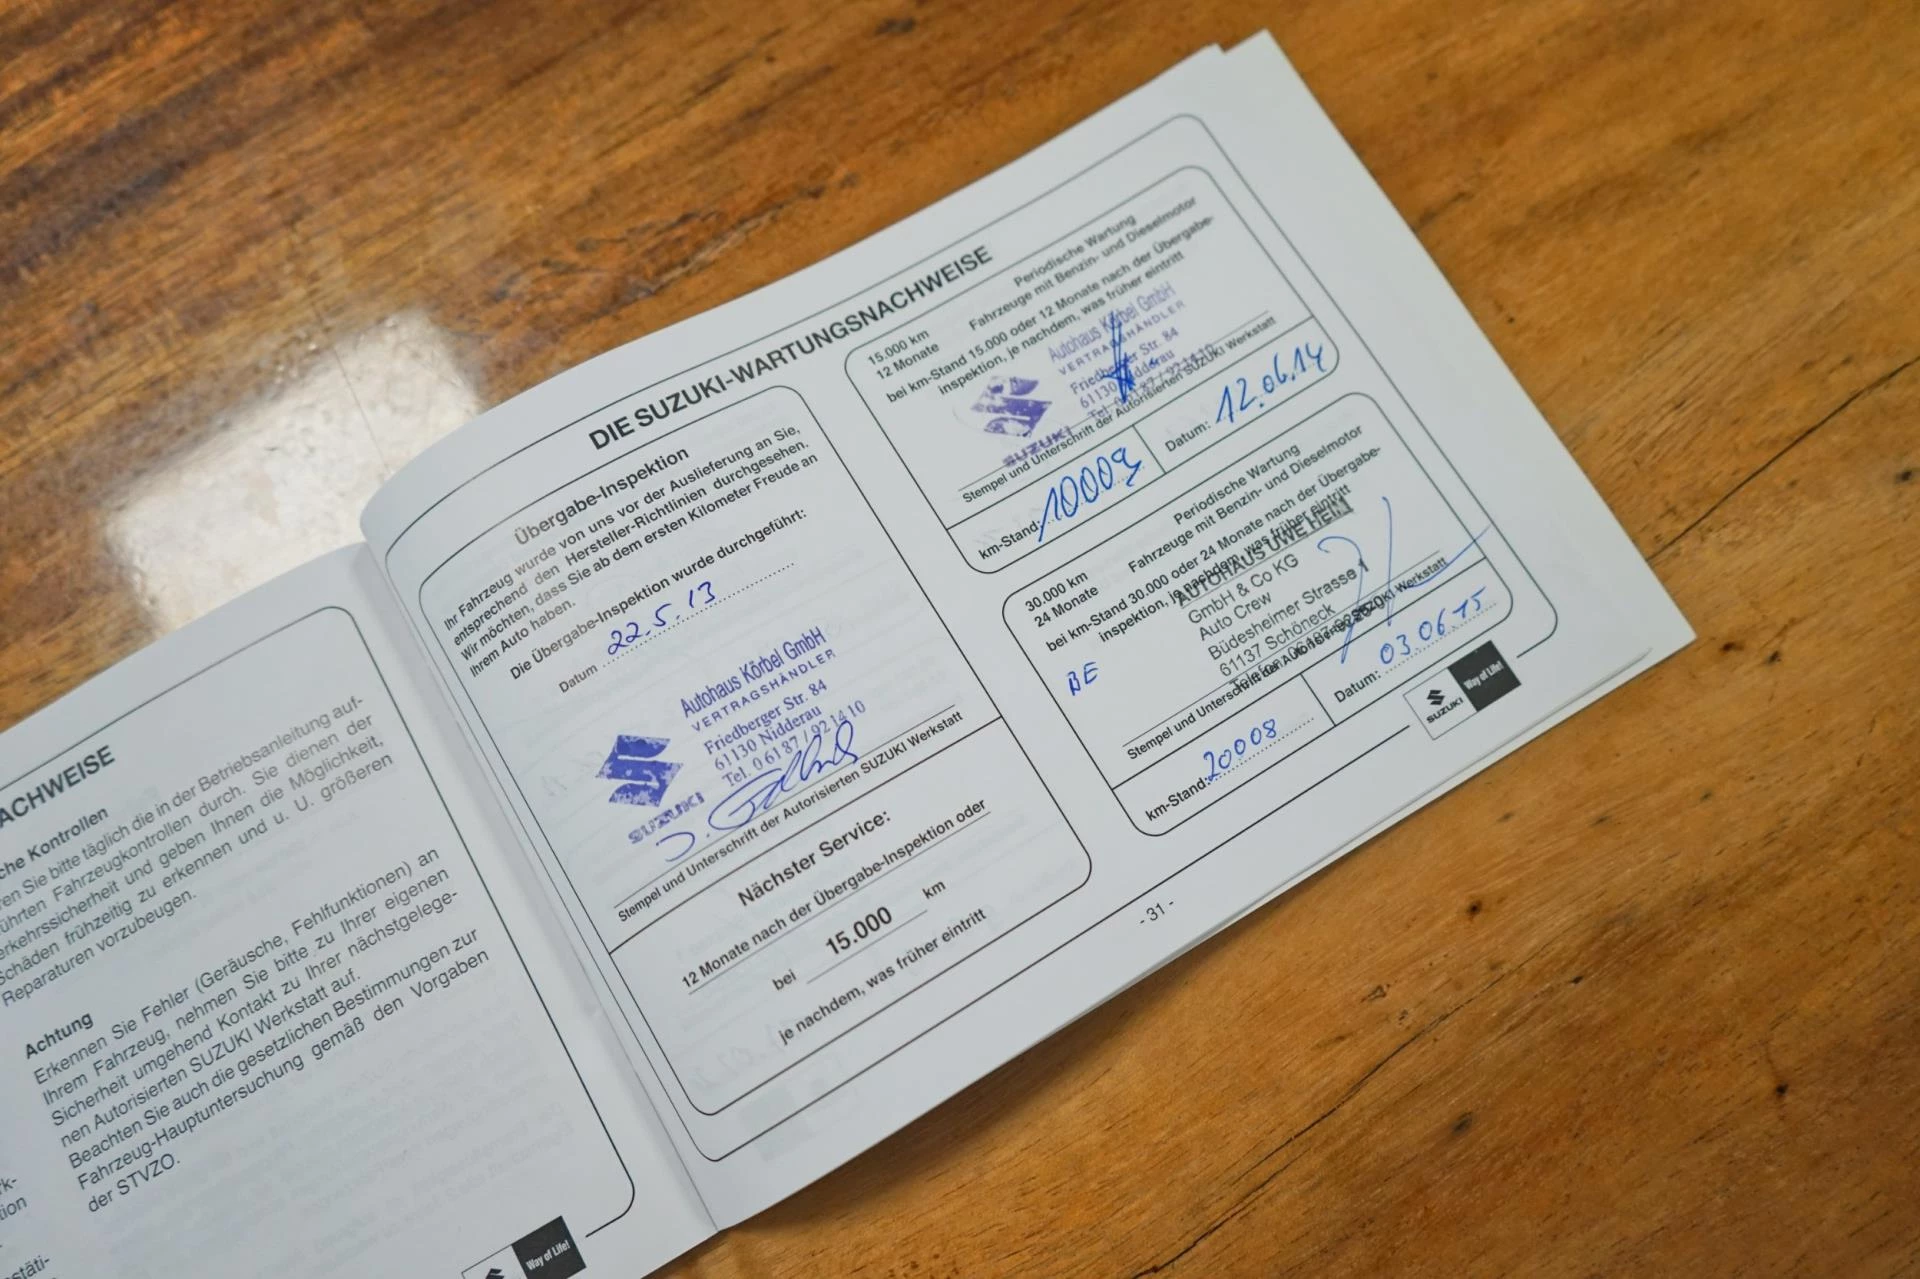 ACHWEISE
che Kontrollen
ren Sie bitte täglich die in der Betriebsanleitung auf-
führten Fahrzeugkontrollen durch. Sie dienen der
erkehrssicherheit und geben Ihnen die Möglichkeit,
Schäden frühzeitig zu erkennen und u. U. größeren
Reparaturen vorzubeugen.
Achtung
Erkennen Sie Fehler (Geräusche, Fehlfunktionen) an
Ihrem Fahrzeug, nehmen Sie bitte zu Ihrer eigenen
Sicherheit umgehend Kontakt zu Ihrer nächstgelege-
nen Autorisierten SUZUKI Werkstatt auf.
Beachten Sie auch die gesetzlichen Bestimmungen zur
Fahrzeug-Hauptuntersuchung gemäß den Vorgaben
der STVZO.
rk-
tion
stäti-
Way of Life!
DIE SUZUKI-WARTUNGSNACHWEISE
Übergabe-Inspektion
Ihr Fahrzeug wurde von uns vor der Auslieferung an Sie,
entsprechend den Hersteller-Richtlinien durchgesehen.
Wir möchten, dass Sie ab dem ersten Kilometer Freude an
Ihrem Auto haben.
Die Übergabe-Inspektion wurde durchgeführt:
Datum 22.5.13
Autohaus Körbel GmbH
VERTRAGSHÄNDLER
Friedberger Str. 84
61130 Nidderau
Tel. 0 61 87 / 92 14 10
SUZUKI
Stempel und Unterschrift der Autorisierten SUZUKI Werkstatt
Nächster Service:
12 Monate nach der Übergabe-Inspektion oder
bei 15.000 km
je nachdem, was früher eintritt
15.000 km
12 Monate
Periodische Wartung
Fahrzeuge mit Benzin- und Dieselmotor
bei km-Stand 15.000 oder 12 Monate nach der Übergabe-
inspektion, je nachdem, was früher eintritt
Autohaus Körbel GmbH
VERTRAGSHÄNDLER
Friedberger Str. 84
61130 Nidderau
Tel. 0 61 87 / 92 14 10
SUZUKI
Stempel und Unterschrift der Autorisierten SUZUKI Werkstatt
km-Stand: 10009
Datum: 12.06.14
30.000 km
24 Monate
Periodische Wartung
Fahrzeuge mit Benzin- und Dieselmotor
bei km-Stand 30.000 oder 24 Monate nach der Übergabe-
inspektion, je nachdem, was früher eintritt
AUTOHAUS UWE
GmbH & Co KG
Auto Crew
Büdesheimer Strasse 1
61137 Schöneck
Telefon
BE
Stempel und Unterschrift der Autorisierten SUZUKI Werkstatt
km-Stand: 20008
Datum: 03.06.15
SUZUKI
Way of Life!
- 31 -